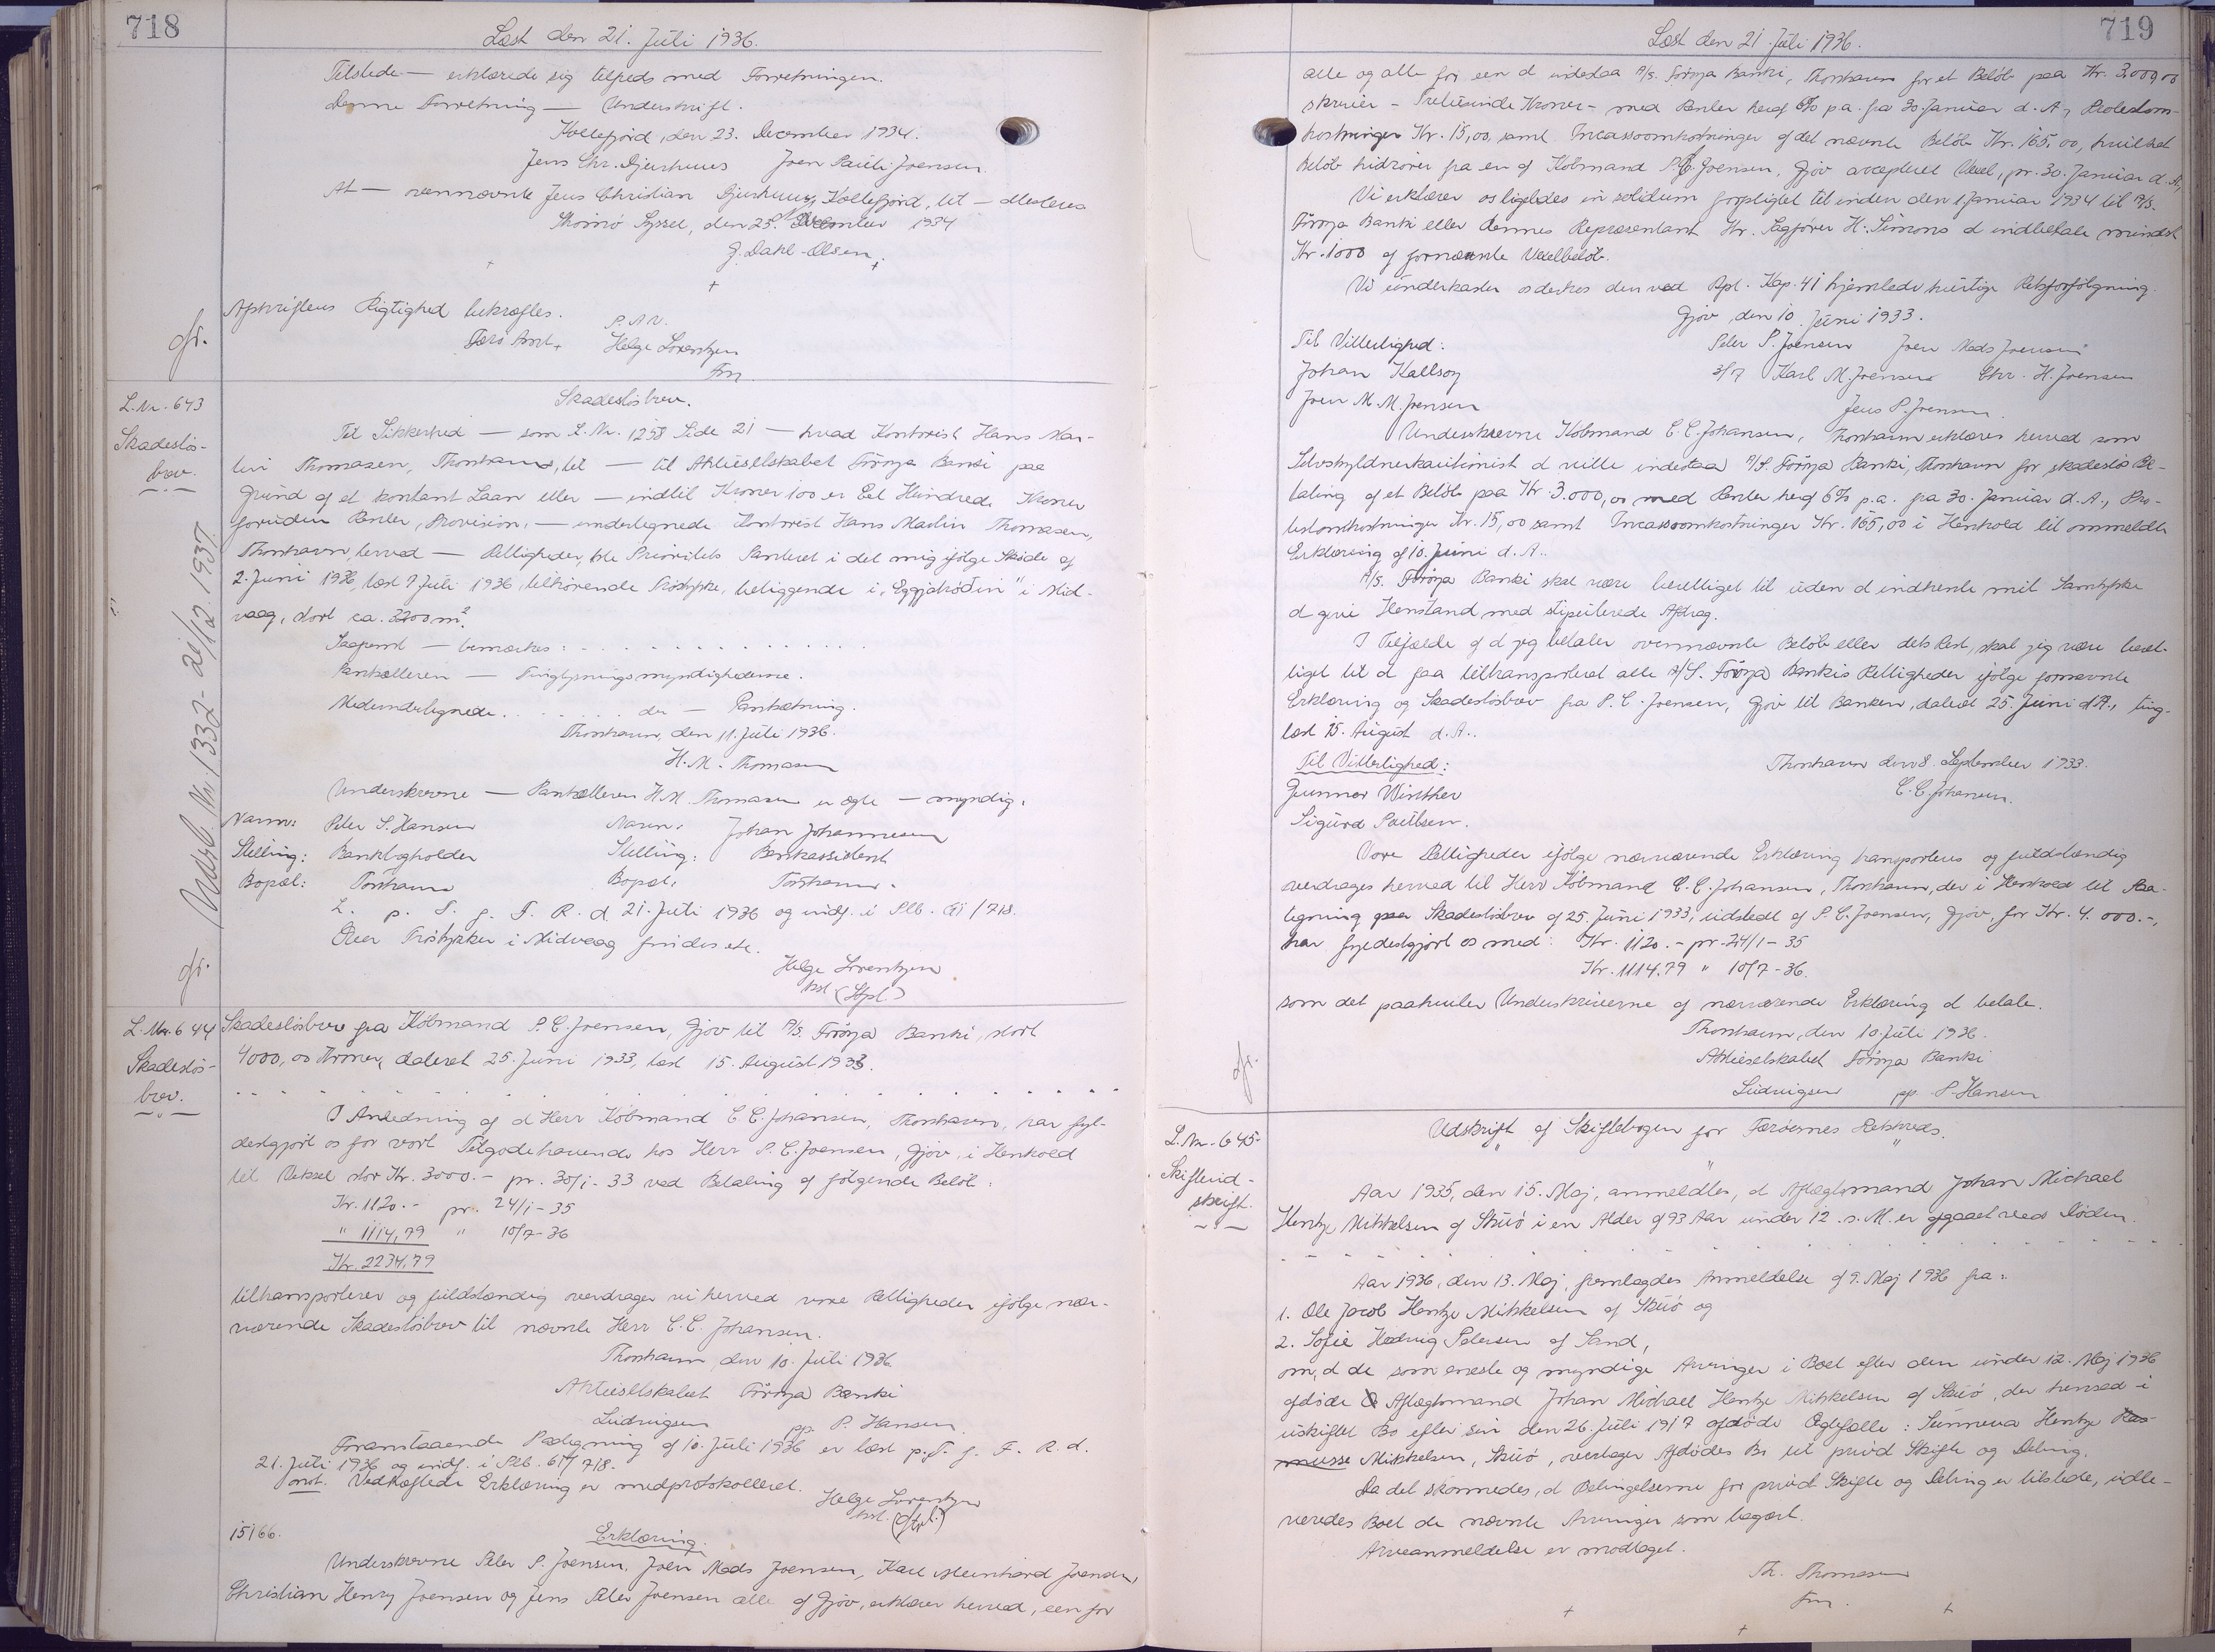 718
Læst den 21. Juli 1936.
Tilstede — erklærede sig tilfreds med Forretningen.
Denne Forretning — Underskrift.
Kollefjord, den 23. December 1934.
Jens Chr. Djurhuus Joen Pauli Joensen
At — ovennævnte Jens Christian Djurhuus, Kollefjord, let — attesteres
Strømø Syssel, den 23. December 1934
J. Dahl-Olsen.
Afskriftens Rigtighed bekræftes.
P. A. V.
Færø Amt, Helge Lorentzen
fm
L. Nr. 643
Skadesløs-
brev.
Skadesløsbrev.
Til Sikkerhed — som L. Nr. 1258 Side 21 — hvad Kontorist Hans Mar-
tin Thomasen, Thorshavn, til — til Aktieselskabet Føroya Banki paa
Grund af et kontant Laan eller — indtil Kroner 100 er Eet Hundrede Kroner
foruden Renter, Provision, — undertegnede Kontorist Hans Martin Thomasen,
Thorshavn, herved — Rettigheder, 1ste Prioritets Panteret i det mig ifølge Skøde af
2. Juni 1936, læst 7 Juli 1936, tilhørende Trøstykke, beliggende i "Eggjatrøðin" i Mid-
vaag, stort ca. 3200 m².
Saafremt — bemærkes: . . . . . . . . . . . . . . .
Pantsætteren — Tinglysningsmyndighederne.
Medundertegnede . . . . . . . der — Pantsætning.
Thorshavn, den 11. Juli 1936.
H. M. Thomasen
Underskrevne — Pantsætteren H. M. Thomasen er ægte — myndig.
Navn: Peter S. Hansen Navn: Johan Johannesen
Stilling: Bankbogholder Stilling: Bankassistent
Bopæl: Torshavn Bopæl: Torshavn.
L. p. T. f. F. R. d. 21. Juli 1936 og indf. i Plb. 61/718.
Over Trøstykker i Midvaag findes etc.
Helge Lorentzen
kst. (Stpl.)
Udsl. L. Nr. 1332 - 21/12 1937.
L. Nr. 644
Skadesløs-
brev.
Skadesløsbrev fra Købmand P. C. Joensen, Gjov til A/S. Føroya Banki, stort
4000,00 Kroner, dateret 25. Juni 1933, læst 15. August 1933.
I Anledning af at Herr Købmand C. C. Johansen, Thorshavn, har fyl-
destgjort os for vort Tilgodehavende hos Herr P. C. Joensen, Gjov, i Henhold
til Veksel stor Kr. 3000.- pr. 30/1-33 ved Betaling af følgende Beløb:
Kr. 1120.- pr. 24/1-35
" 1114,79 " 10/7-36
Kr. 2234,79
tiltransporterer og fuldstændig overdrager vi herved vore Rettigheder ifølge nær-
værende Skadesløsbrev til nævnte Herr C. C. Johansen.
Thorshavn, den 10. Juli 1936
Aktieselskabet Føroya Banki
Ludvigsen pp. P. Hansen
Foranstaaende Paategning af 10. Juli 1936 er læst p. T. f. F. R. d.
21. Juli 1936 og indf. i Plb. 61/718.
mt. Vedhæftede Erklæring er medprotokolleret.
Helge Lorentzen
kst. (Stpl.)
15166.
Erklæring.
Underskrevne Peter P. Joensen, Joen Mads Joensen, Karl Meinhard Joensen,
Christian Henry Joensen og Jens Peter Joensen alle af Gjov, erklærer herved, een for
719
Læst den 21 Juli 1936.
alle og alle for een at indestaa A/S. Føroya Banki, Thorshavn for et Beløb paa Kr. 3.000,00
skriver - Tretusinde Kroner - med Renter heraf 6% p.a. fra 30. Januar d. A., Protestom-
kostninger Kr. 15,00, samt Incassoomkostninger af det nævnte Beløb Kr. 165,00, hvilket
Beløb hidrører fra en af Købmand P. C. Joensen, Gjov accepteret Veksel, pr. 30. Januar d. A.,
Vi erklærer os ligeledes in solidum forpligtet til inden den 1 Januar 1934 til A/S.
Føroya Banki eller dennes Repræsentant Hr. Sagfører H. Simons at indbetale mindst
Kr. 1000 af fornævnte Vekselbeløb.
Vi underkaster os derhos den ved Rpl. Kap. 41 hjemlede hurtige Retsforfølgning.
Gjov, den 10. Juni 1933.
Til Vitterlighed: Peter P. Joensen Joen Mads Joensen
Johan Kallsoy Karl M. Joensen Chr. H. Joensen
Joen M. M. Joensen Jens P. Joensen.
Underskrevne Købmand C. C. Johansen, Thorshavn erklærer herved som
Selvskyldnerkautionist at ville indestaa A/S. Føroya Banki, Thorshavn for skadesløs Be-
taling af et Beløb paa Kr. 3.000,00 med Renter heraf 6% p.a. fra 30. Januar d. A., Pro-
testomkostninger Kr. 15,00 samt Incassoomkostninger Kr. 165,00 i Henhold til ommeldte
Erklæring af 10. Juni d. A..
A/S. Føroya Banki skal være berettiget til uden at indhente mit Samtykke
at give Henstand med stipulerede Afdrag.
I Tilfælde af at jeg betaler ovennævnte Beløb eller dets Rest, skal jeg være beret-
tiget til at faa tiltransporteret alle A/S. Føroya Bankis Rettigheder ifølge fornævnte
Erklæring og Skadesløsbrev fra P. C. Joensen, Gjov til Banken, dateret 25. Juni d. A., ting-
læst 15. August d. A..
Til Vitterlighed: Thorshavn den 8. September 1933.
Gunnar Winther C. C. Johansen.
Sigurd Poulsen.
Vore Rettigheder ifølge nærværende Erklæring transporteres og fuldstændig
overdrages herved til Herr Købmand C. C. Johansen, Thorshavn, der i Henhold til Paa-
tegning paa Skadesløsbrev af 25. Juni 1933, udstedt af P. C. Joensen, Gjov, for Kr. 4.000.-,
har fyldestgjort os med: Kr. 1120.- pr. 24/1-35
Kr. 1114.79 " 10/7-36.
som det paahviler Underskriverne af nærværende Erklæring at betale.
Thorshavn, den 10. Juli 1936.
Aktieselskabet Føroya Banki
Ludvigsen pp. P. Hansen
L. Nr. 645.
Skifteud-
skrift.
Udskrift af Skiftebogen for Færøernes Retskreds.
Aar 1935, den 15. Maj, anmeldtes, at Aftægtsmand Johan Michael
Hentze Mikkelsen af Skuø i en Alder af 93 Aar under 12. s. M. er afgaaet ved Døden.
Aar 1936, den 13. Maj, fremlagdes Anmeldelse af 9. Maj 1936 fra:
1. Ole Jacob Hentze Mikkelsen af Skuø og
2. Sofie Hedvig Petersen af Sand,
om, at de som eneste og myndige Arvinger i Boet efter den under 12. Maj 1936
afdøde Aftægtsmand Johan Michael Hentze Mikkelsen af Skuø, der hensad i
uskiftet Bo efter sin den 26. Juli 1917 afdøde Ægtefælle: Sunneva Hentze Ras-
musse Mikkelsen, Skuø, overtager Afdødes Bo til privat Skifte og Deling.
Da det skønnedes, at Betingelserne for privat Skifte og Deling er tilstede, udle-
veredes Boet de nævnte Arvinger som begært.
Arveanmeldelse er modtaget.
Th. Thomasen
fm.